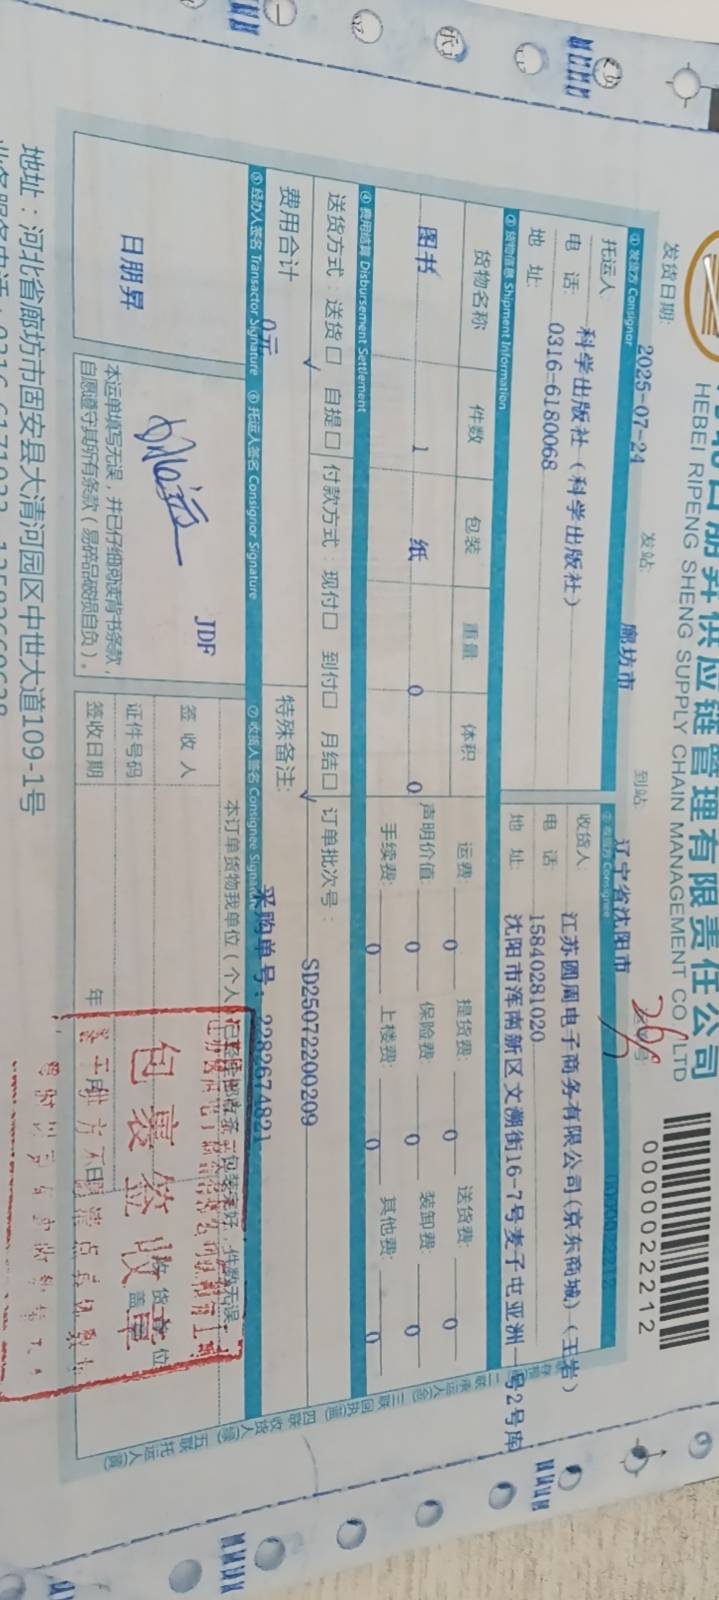 日朋昇供应链管理有限责任公司
HEBEI RIPENG SHENG SUPPLY CHAIN MANAGEMENT CO., LTD
0000022212
发货日期: 2025-07-24 发站: 廊坊市 到站: 辽宁省沈阳市
① 发货方 Consignor
② 收货方 Consignee
托运人: 科学出版社（科学出版社）
电 话: 0316-6180068
地 址:
收货人: 江苏圆周电子商务有限公司(京东商城)（王岩）
电 话: 15840281020
地 址: 沈阳市浑南新区文溯街16-7号麦子屯亚洲一号2号库
③ 货物信息 Shipment Information
货物名称 件数 包装 重量 体积
图书 1 纸 0 0
运费: 0 提货费: 0 送货费: 0
声明价值: 0 保险费: 0 装卸费: 0
手续费: 0 上楼费: 0 其他费: 0
④ 费用结算 Disbursement Settlement
送货方式: 送货□ 自提□ 付款方式: 现付□ 到付□ 月结□ 订单批次号: SD25072200209
费用合计 0元 特殊备注: 采购单号: 2282674821
⑤ 经办人签名 Transactor Signature ⑥ 托运人签名 Consignor Signature ⑦ 收货人签名 Consignee Signature
日朋昇
JDF
本运单填写无误，并已仔细阅读背书条款，
自愿遵守其所有条款（易碎品破损自负）。
本订单货物我单位（个人
签 收 人
证件号码
签收日期 年
包裹签收章
地址：河北省廊坊市固安县大清河园区中世大道109-1号